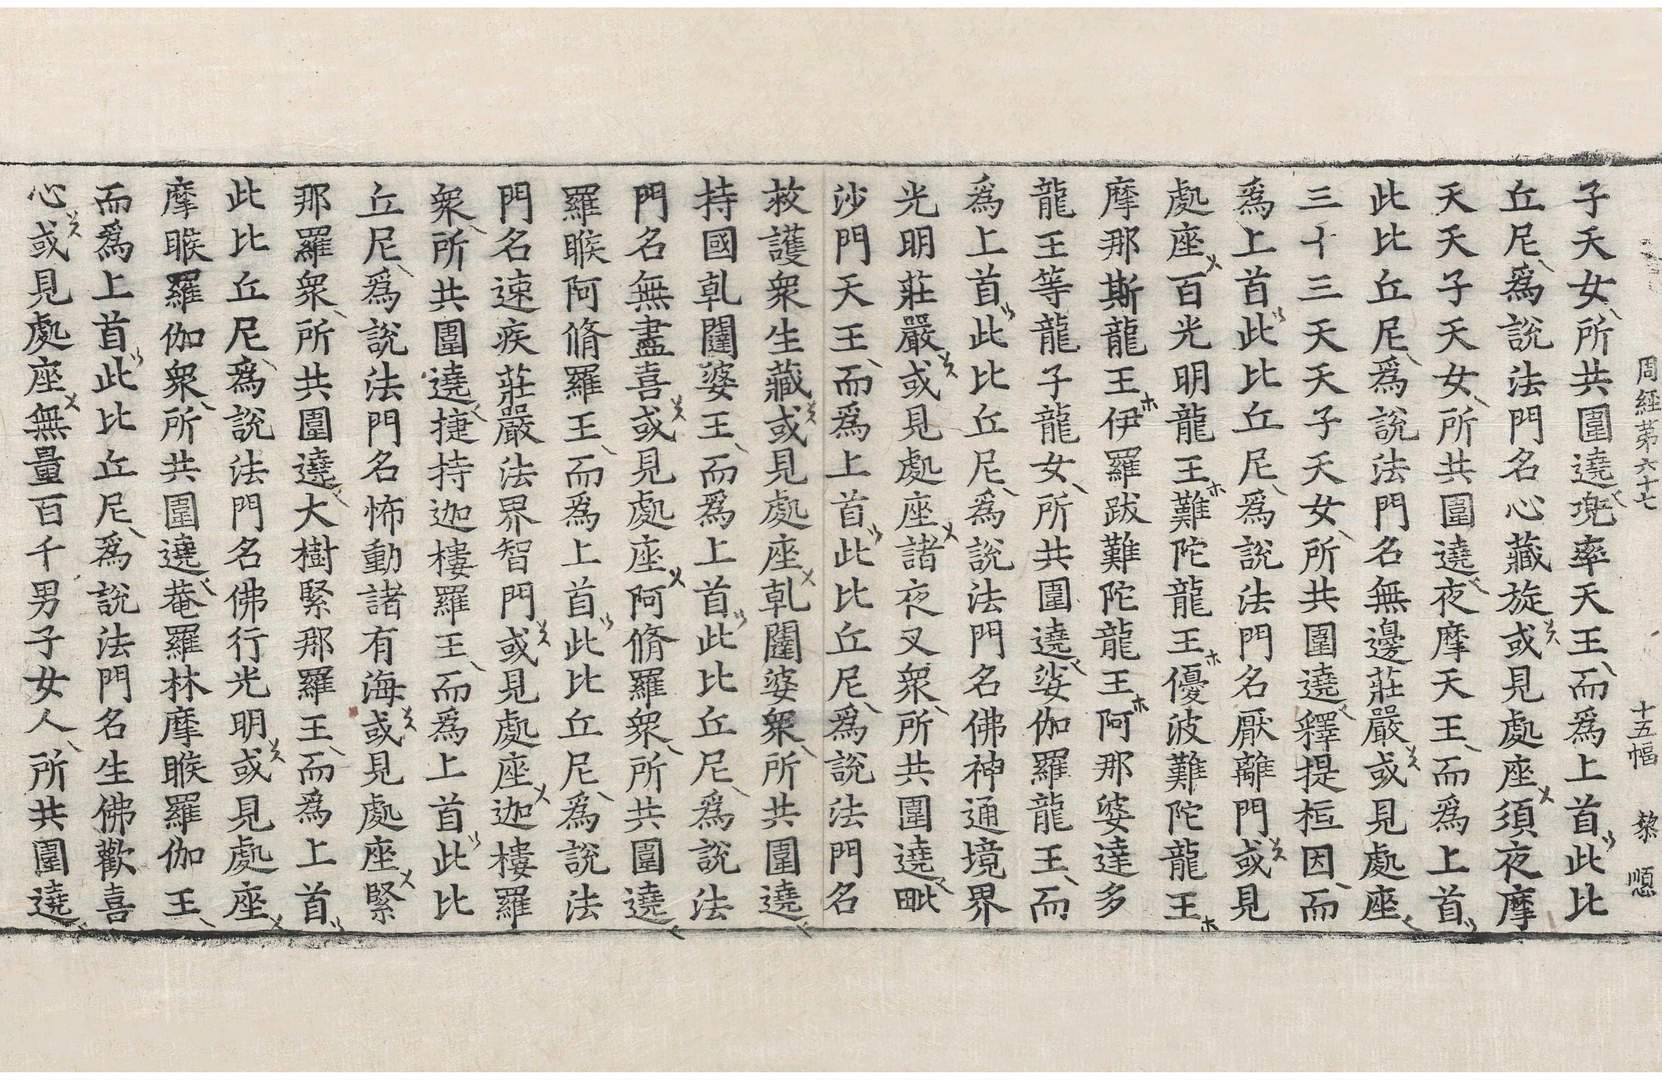 周經第六十七　十五幅　黎順
子天女所共圍遶兜率天王而爲上首此比
丘尼爲說法門名心藏旋或見處座須夜摩
天天子天女所共圍遶夜摩天王而爲上首
此比丘尼爲說法門名無邊莊嚴或見處座
三十三天天子天女所共圍遶釋提桓因而
爲上首此比丘尼爲說法門名厭離門或見
處座百光明龍王難陀龍王優波難陀龍王
摩那斯龍王伊羅跋難陀龍王阿那婆達多
龍王等龍子龍女所共圍遶娑伽羅龍王而
爲上首此比丘尼爲說法門名佛神通境界
光明莊嚴或見處座諸夜叉衆所共圍遶毗
沙門天王而爲上首此比丘尼爲說法門名
救護衆生藏或見處座乹闥婆衆所共圍遶
持國乹闥婆王而爲上首此比丘尼爲說法
門名無盡喜或見處座阿脩羅衆所共圍遶
羅睺阿脩羅王而爲上首此比丘尼爲說法
門名速疾莊嚴法界智門或見處座迦樓羅
衆所共圍遶捷持迦樓羅王而爲上首此比
丘尼爲說法門名怖動諸有海或見處座緊
那羅衆所共圍遶大樹緊那羅王而爲上首
此比丘尼爲說法門名佛行光明或見處座
摩睺羅伽衆所共圍遶菴羅林摩睺羅伽王
而爲上首此比丘尼爲說法門名生佛歡喜
心或見處座無量百千男子女人所共圍遶